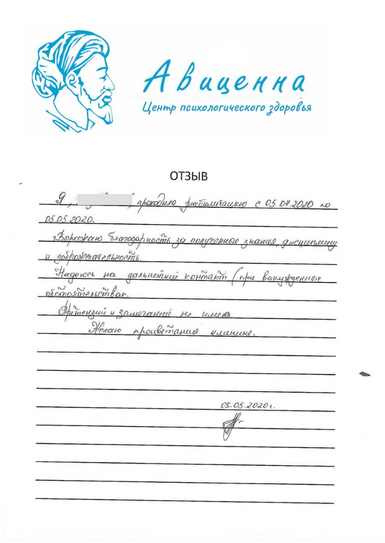 Авиценна
Центр психологического здоровья
ОТЗЫВ
Я, проходила реабилитацию с 05.04.2020 по
05.05.2020.
Выражаю благодарность за полученные знания, дисциплину
и доброжелательность.
Надеюсь на дальнейший контакт (при вынужденных
обстоятельствах.
Претензий и замечаний не имею.
Желаю процветания клинике.
05.05.2020г.